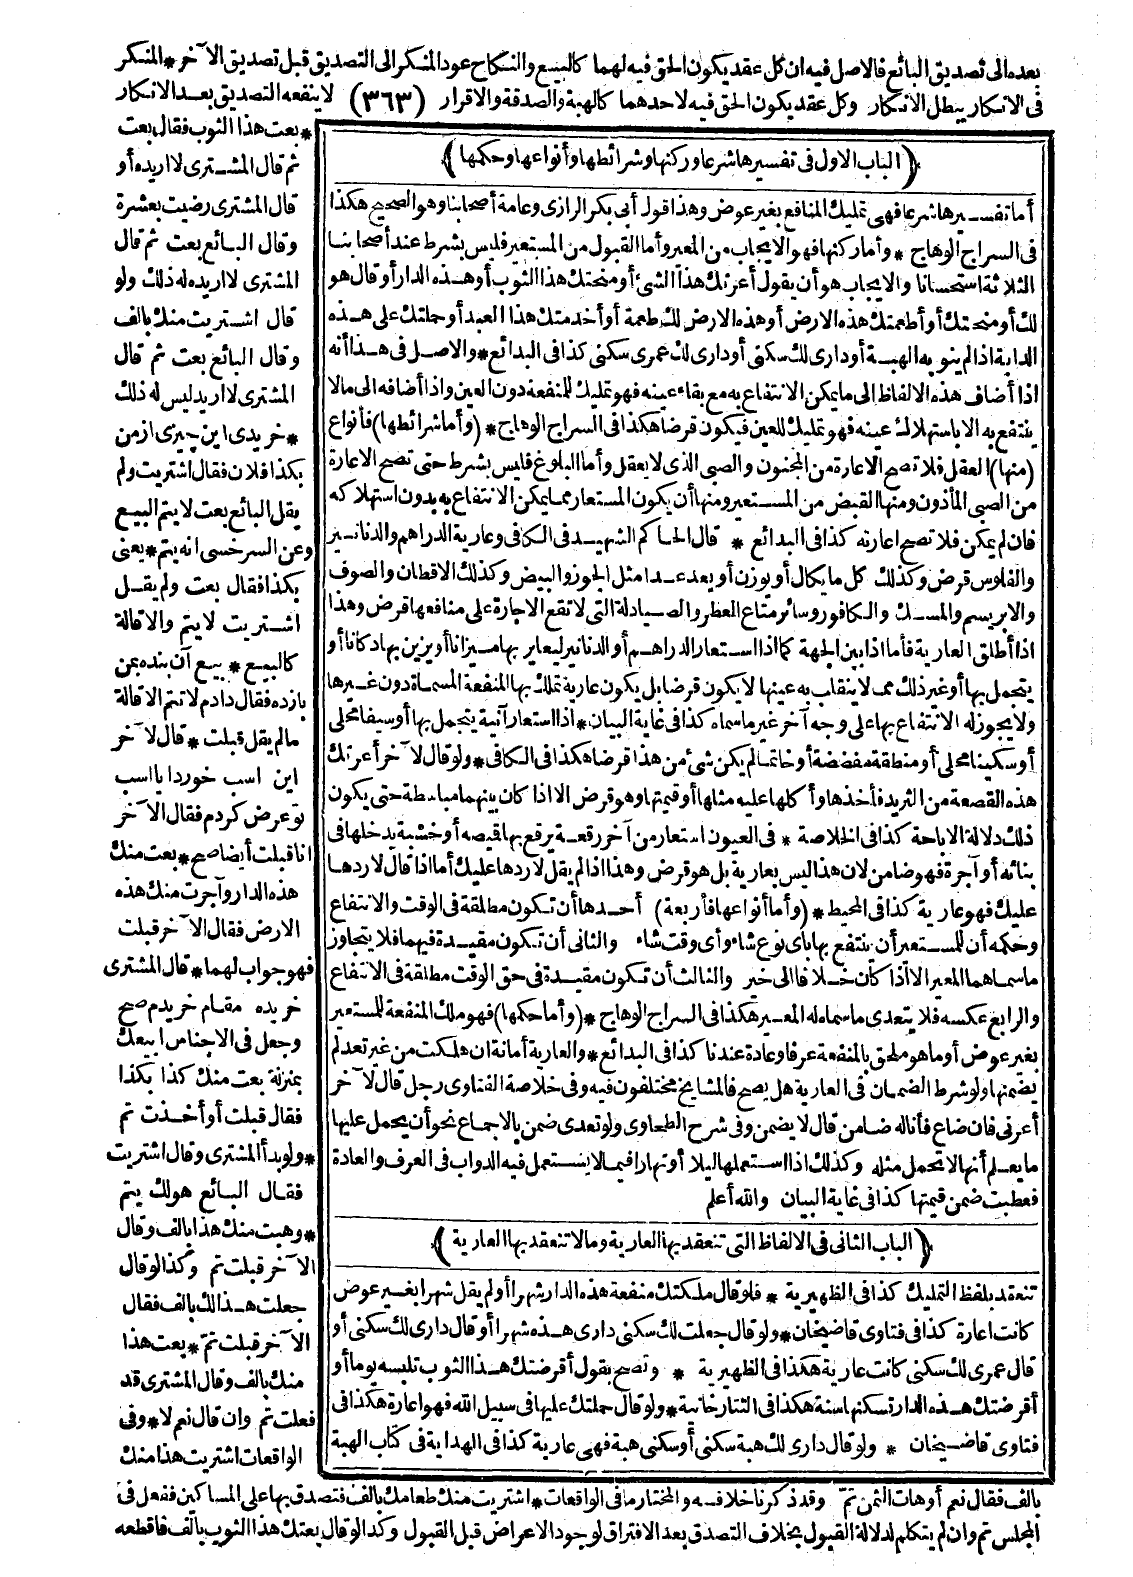 بعده الى تصديق البائع فالاصل فيه ان كل عقد يكون الحق فيه لهما كالبيع والنكاح عود المنكر الى التصديق قبل تصديق الآخر * المنكر
فى الانكار يبطل الانكار وكل عقد يكون الحق فيه لاحدهما كالهبة والصدقة والاقرار (٣٦٣) لا ينفعه التصديق بعد الانكار
* بعت هذا الثوب فقال بعت
ثم قال المشترى لا اريده أو
قال المشترى رضيت بعشرة
وقال البائع بعت ثم قال
المشترى لا اريده له ذلك ولو
قال اشتريت منك بالف
وقال البائع بعت ثم قال
المشترى لا اريد ليس له ذلك
* خريدى اين چيزى از من
بكذا فلان فقال اشتريت ولم
يقل البائع بعت لا يتم البيع
وعن السرخسى انه يتم * يعنى
بكذا فقال بعت ولم يقل
اشتريت لا يتم والاقالة
كالبيع * بيع آن بنده بمن
بازده فقال دادم لا تتم الاقالة
مالم يقل قبلت * قال لآخر
اين اسب خوردا يا اسب
تو عرض كردم فقال الآخر
انا قبلت أيضا صح * بعت منك
هذه الدار وآجرت منك هذه
الارض فقال الآخر قبلت
فهو جواب لهما * قال المشترى
خريده مقام خريدم صح
وجعل فى الاجناس ابيعك
بمنزلة بعت منك كذا بكذا
فقال قبلت أو أخذت تم
* ولو بدأ المشترى وقال اشتريت
فقال البائع هو لك يتم
* وهبت منك هذا بالف وقال
الآخر قبلت تم وكذا لو قال
جعلت هذا لك بالف فقال
الآخر قبلت تم * بعت هذا
منك بالف وقال المشترى قد
فعلت تم وان قال نعم لا * وفى
الواقعات اشتريت هذا منك
(الباب الاول فى تفسيرها شرعا وركنها وشرائطها وأنواعها وحكمها)
أما تفسيرها شرعا فهى تمليك المنافع بغير عوض وهذا قول أبى بكر الرازى وعامة أصحابنا وهو الصحيح هكذا
فى السراج الوهاج * وأما ركنها فهو الايجاب من المعير وأما القبول من المستعير فليس بشرط عند أصحابنا
الثلاثة استحسانا والايجاب هو أن يقول أعرتك هذا الشئ أو منحتك هذا الثوب أو هذه الدار أو قال هو
لك أو منحتك أو أطعمتك هذه الارض أو هذه الارض لك طعمة أو أخدمتك هذا العبد أو حملتك على هذه
الدابة اذا لم ينو به الهبة أو دارى لك سكنى أو دارى لك عمرى سكنى كذا فى البدائع * والاصل فى هذا أنه
اذا أضاف هذه الالفاظ الى ما يمكن الانتفاع به مع بقاء عينه فهو تمليك للمنفعة دون العين واذا أضافه الى مالا
ينتفع به الا باستهلاك عينه فهو تمليك للعين فيكون قرضا هكذا فى السراج الوهاج * (وأما شرائطها) فأنواع
(منها) العقل فلا تصح الاعارة من المجنون والصبى الذى لا يعقل وأما البلوغ فليس بشرط حتى تصح الاعارة
من الصبى المأذون ومنها القبض من المستعير ومنها أن يكون المستعار مما يمكن الانتفاع به بدون استهلاكه
فان لم يمكن فلا تصح اعارته كذا فى البدائع * قال الحاكم الشهيد فى الكافى وعارية الدراهم والدنانير
والفلوس قرض وكذلك كل ما يكال أو يوزن أو يعد عدا مثل الجوز والبيض وكذلك الاقطان والصوف
والابريسم والمسك والكافور وسائر متاع العطر والصيادلة التى لا تقع الاجارة على منافعها قرض وهذا
اذا أطلق العارية فأما اذا بين الجهة كما اذا استعار الدراهم أو الدنانير ليعاير بها ميزانا أو يزين بها دكانا أو
يتجمل بها أو غير ذلك مما لا ينقلب به عينها لا يكون قرضا بل يكون عارية تملك بها المنفعة المسماة دون غيرها
ولا يجوز له الانتفاع بها على وجه آخر غير ما سماه كذا فى غاية البيان * اذا استعار آنية يتجمل بها أو سيفا محلى
أو سكينا محلى أو منطقة مفضضة أو خاتما لم يكن شئ من هذا قرضا هكذا فى الكافى * ولو قال لآخر أعرتك
هذه القصعة من الثريد فأخذها وأكلها عليه مثلها أو قيمتها وهو قرض الا اذا كان بينهما مباسطة حتى يكون
ذلك دلالة الاباحة كذا فى الخلاصة * فى العيون استعار من آخر رقعة يرقع بها قميصه أو خشبة يدخلها فى
بنائه أو آجرة فهو ضامن لان هذا ليس بعارية بل هو قرض وهذا اذا لم يقل لاردها عليك أما اذا قال لاردها
عليك فهو عارية كذا فى المحيط * (وأما أنواعها فأربعة) أحدها أن تكون مطلقة فى الوقت والانتفاع
وحكمه أن للمستعير أن ينتفع بها باى نوع شاء وأى وقت شاء والثانى أن تكون مقيدة فيهما فلا يتجاوز
ما سماهما المعير الا اذا كان خلافا الى خير والثالث أن تكون مقيدة فى حق الوقت مطلقة فى الانتفاع
والرابع عكسه فلا يتعدى ما سماه له المعير هكذا فى السراج الوهاج * (وأما حكمها) فهو ملك المنفعة للمستعير
بغير عوض أو ما هو ملحق بالمنفعة عرفا وعادة عندنا كذا فى البدائع * والعارية أمانة ان هلكت من غير تعد لم
يضمنها ولو شرط الضمان فى العارية هل يصح فالمشايخ مختلفون فيه وفى خلاصة الفتاوى رجل قال لآخر
أعرنى فان ضاع فأنا له ضامن قال لا يضمن وفى شرح الطحاوى ولو تعدى ضمن بالاجماع نحو أن يحمل عليها
ما يعلم أنها لا تحمل مثله وكذلك اذا استعملها ليلا أو نهارا فيما لا يستعمل فيه الدواب فى العرف والعادة
فعطبت ضمن قيمتها كذا فى غاية البيان والله أعلم
(الباب الثانى فى الالفاظ التى تنعقد بها العارية ومالا تنعقد بها العارية)
تنعقد بلفظ التمليك كذا فى الظهيرية * فلو قال ملكتك منفعة هذه الدار شهرا أو لم يقل شهرا بغير عوض
كانت اعارة كذا فى فتاوى قاضيخان * ولو قال جعلت لك سكنى دارى هذه شهرا أو قال دارى لك سكنى أو
قال عمرى لك سكنى كانت عارية هكذا فى الظهيرية * وتصح بقول أقرضتك هذا الثوب تلبسه يوما أو
أقرضتك هذه الدار تسكنها سنة هكذا فى التتارخانية * ولو قال حملتك عليها فى سبيل الله فهو اعارة هكذا فى
فتاوى قاضيخان * ولو قال دارى لك هبة سكنى أو سكنى هبة فهى عارية كذا فى الهداية فى كتاب الهبة
بالف فقال نعم أو هات الثمن تم وقد ذكرنا خلافه والمختار ما فى الواقعات * اشتريت منك طعامك بالف فتصدق بها على المساكين ففعل فى
المجلس تم وان لم يتكلم لدلالة القبول بخلاف التصدق بعد الافتراق لوجود الاعراض قبل القبول وكذا لو قال بعتك هذا الثوب بالف فاقطعه